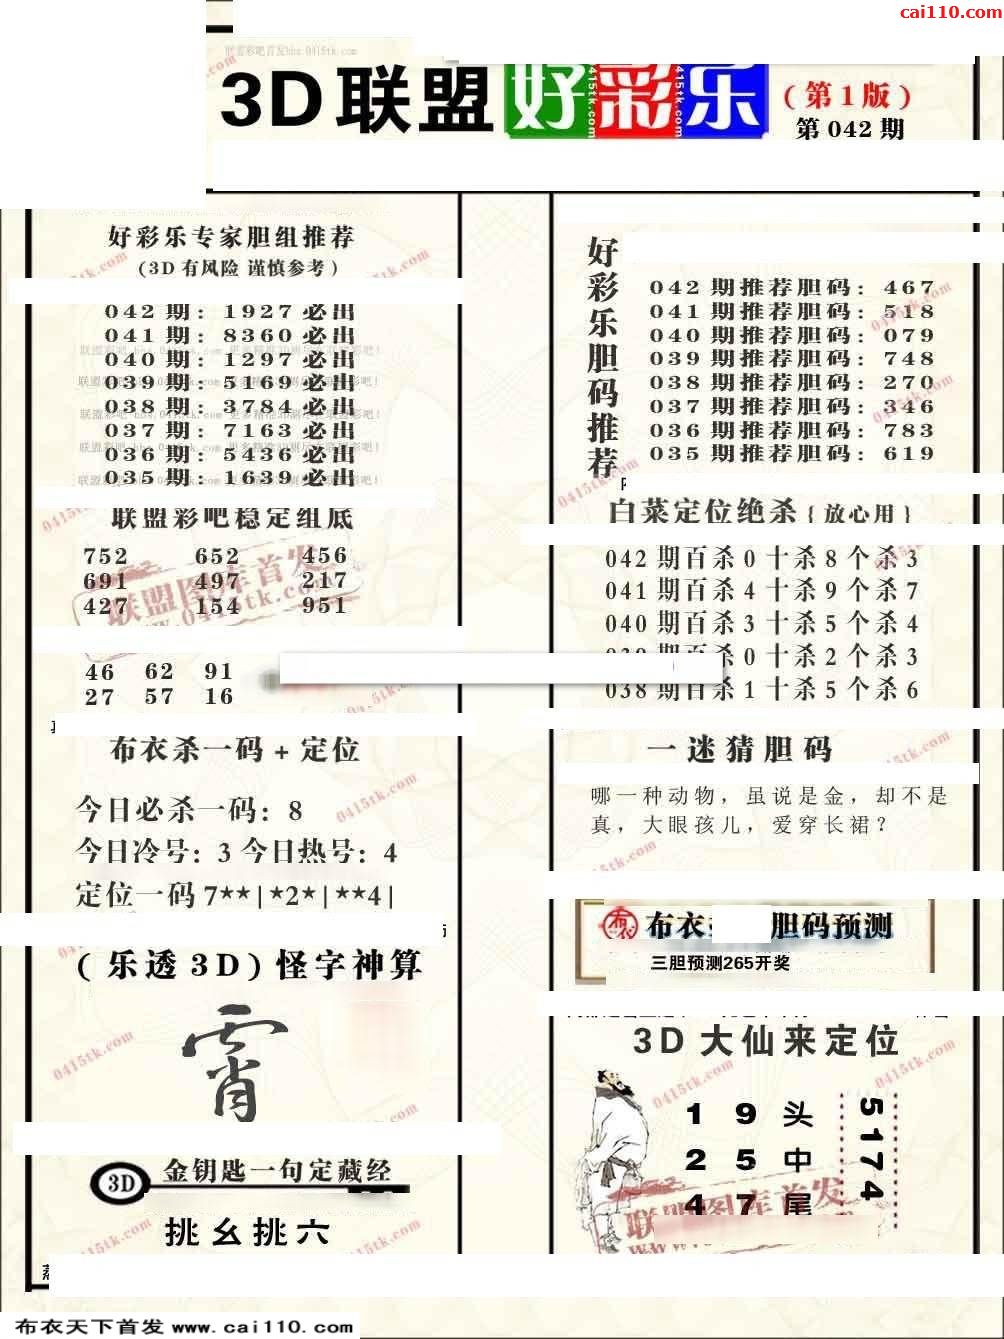 cai110.com
联盟彩吧首发bbs.0415tk.com
3D联盟 好彩乐
(第1版)
第042期
好彩乐专家胆组推荐
(3D有风险 谨慎参考)
042期: 1927必出
041期: 8360必出
040期: 1297必出
039期: 5169必出
038期: 3784必出
037期: 7163必出
036期: 5436必出
035期: 1639必出
联盟彩吧稳定组底
752 652 456
691 497 217
427 154 951
联盟图库首发
46 62 91
27 57 16
布衣杀一码+定位
今日必杀一码: 8
今日冷号: 3 今日热号: 4
定位一码 7★★|★2★|★★4|
(乐透3D)怪字神算
霄
3D 金钥匙一句定藏经
挑幺挑六
好彩乐胆码推荐
042期推荐胆码: 467
041期推荐胆码: 518
040期推荐胆码: 079
039期推荐胆码: 748
038期推荐胆码: 270
037期推荐胆码: 346
036期推荐胆码: 783
035期推荐胆码: 619
白菜定位绝杀{放心用}
042期百杀0十杀8个杀3
041期百杀4十杀9个杀7
040期百杀3十杀5个杀4
039期百杀0十杀2个杀3
038期百杀1十杀5个杀6
一迷猜胆码
哪一种动物，虽说是金，却不是
真，大眼孩儿，爱穿长裙？
布衣 胆码预测
三胆预测265开奖
3D大仙来定位
1 9 头
2 5 中
4 7 尾
5174
联盟图库首发
0415tk.com
布衣天下首发 www.cai110.com